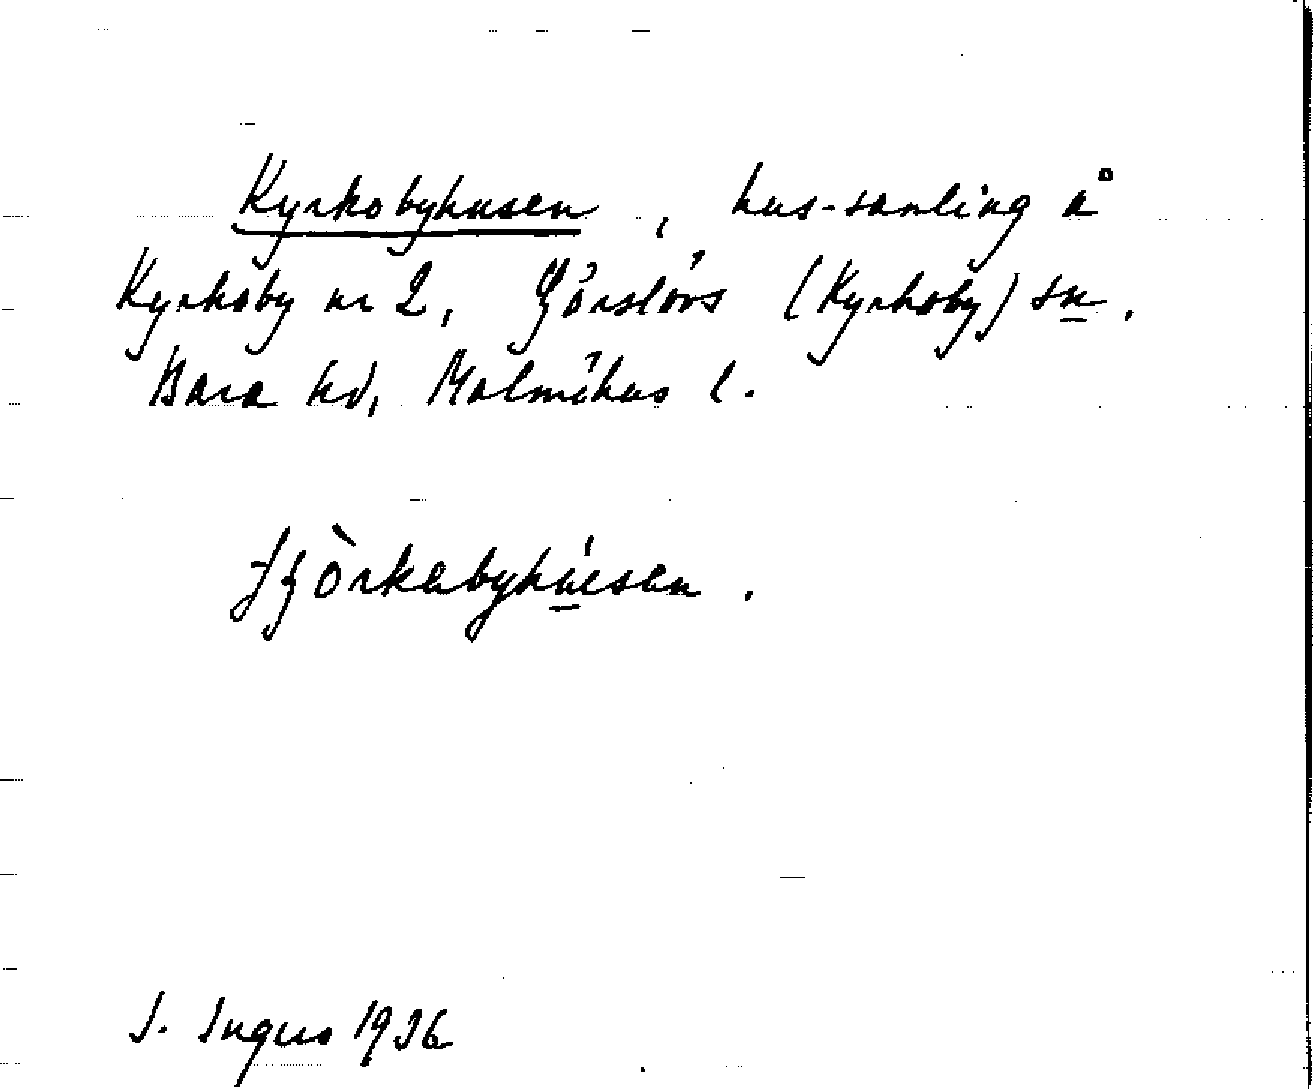 Kyrkobyhusen, hus-samling å
Kyrkoby nr 2, Görslövs (Kyrkoby) sn.
Bara hd, Malmöhus l.
kyrkebyhusen.
I. Ingers 1936